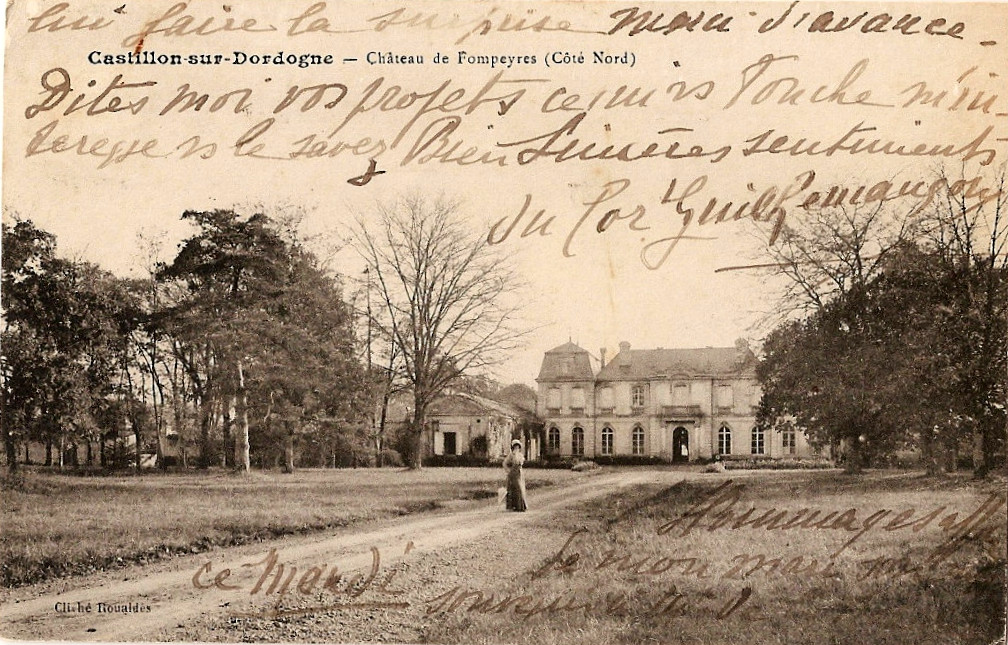 lui faire la surprise merci d'avance -
Castillon-sur-Dordogne — Château de Fompeyres (Côté Nord)
Dites moi vos projets ce qui vs Touche m'in
teresse vs le savez Bien Sincères sentiments
du Cor Guilhemangoy
Hommages aff
ce Mardi
de mon mari
Cliché Roualdès